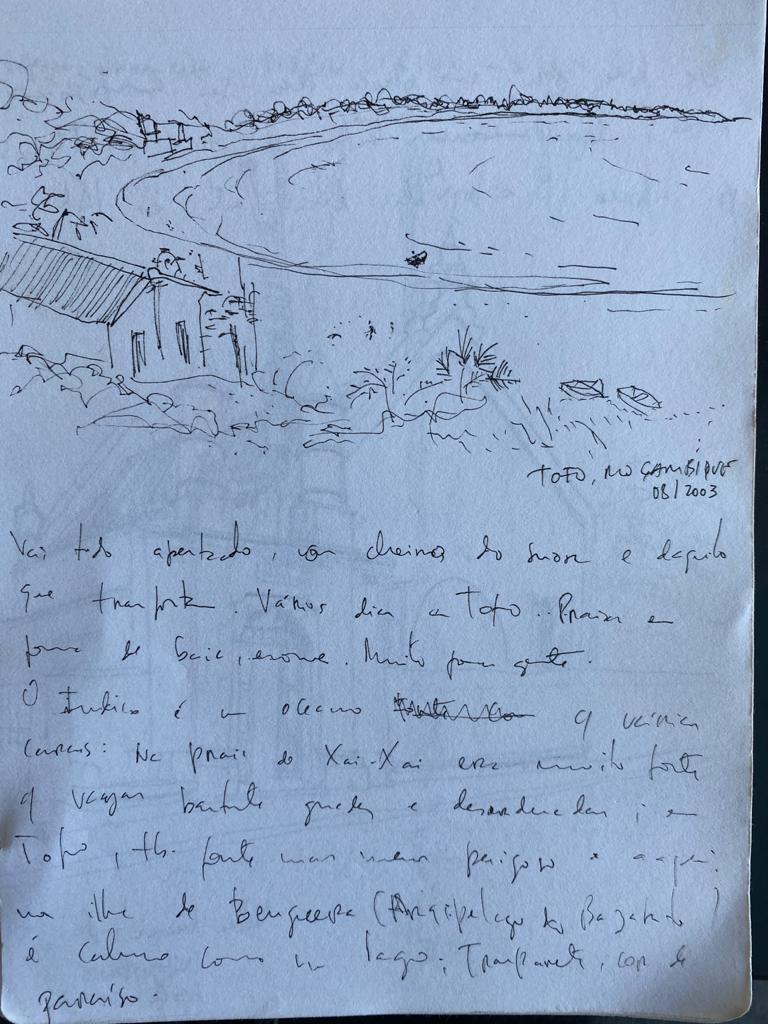 TOFO, MOÇAMBIQUE
08/2003
Vai tudo apertado, com cheiros do suor e daquilo
que transporta. Vários dias em Tofo.. Praia em
forma de baía, enorme. Muito pouca gente.
O Índico é um oceano q várias
caras: Na praia do Xai-Xai era muito forte
q vagas bastante grandes e desordenadas; em
Tofo, tb. forte mas menos perigoso e aqui
na ilha de Benguerra (Arquipélago do Bazaruto)
é calmo como um lago; Transparente, cor de
paraíso.